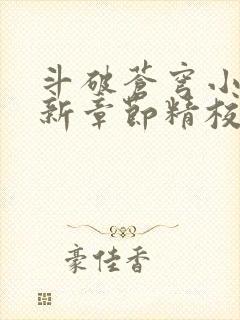 斗破苍穹小
新章节精校
豪佳香